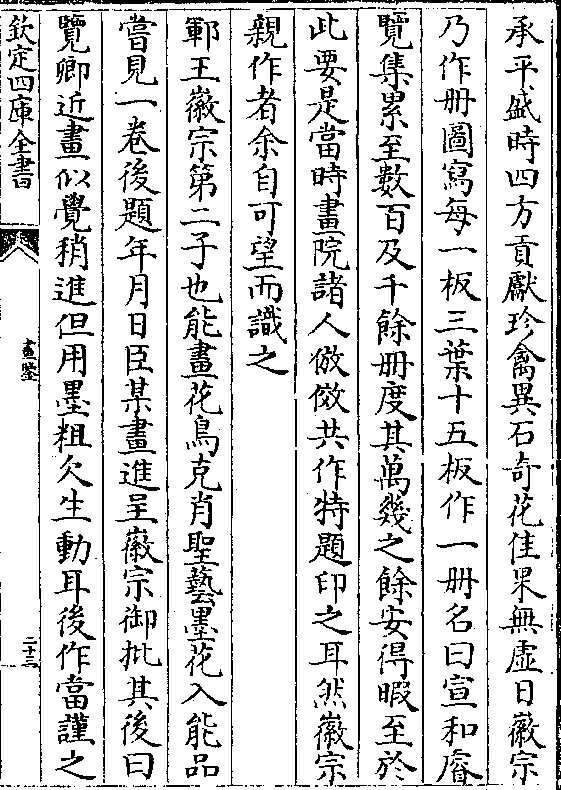 承平盛時四方貢獻珍禽異石奇花佳果無虛日徽宗
乃作册圖寫每一板三葉十五板作一册名曰宣和睿
覽集累至數百及千餘册度其萬幾之餘安得暇至於
此要是當時畫院諸人倣倣共作特題印之耳然徽宗
親作者余自可望而識之
鄆王徽宗第二子也能畫花鳥克肖聖藝墨花入能品
嘗見一卷後題年月日臣某畫進呈徽宗御批其後曰
覽卿近畫似覺稍進但用墨粗欠生動耳後作當謹之
欽定四庫全書
畫鑒
二十三